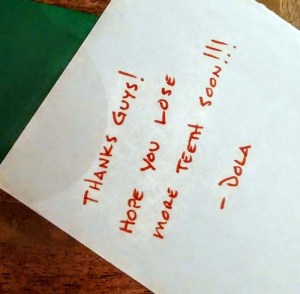 THANKS GUYS!
HOPE YOU LOSE
MORE TEETH SOON!!!
- DOLA